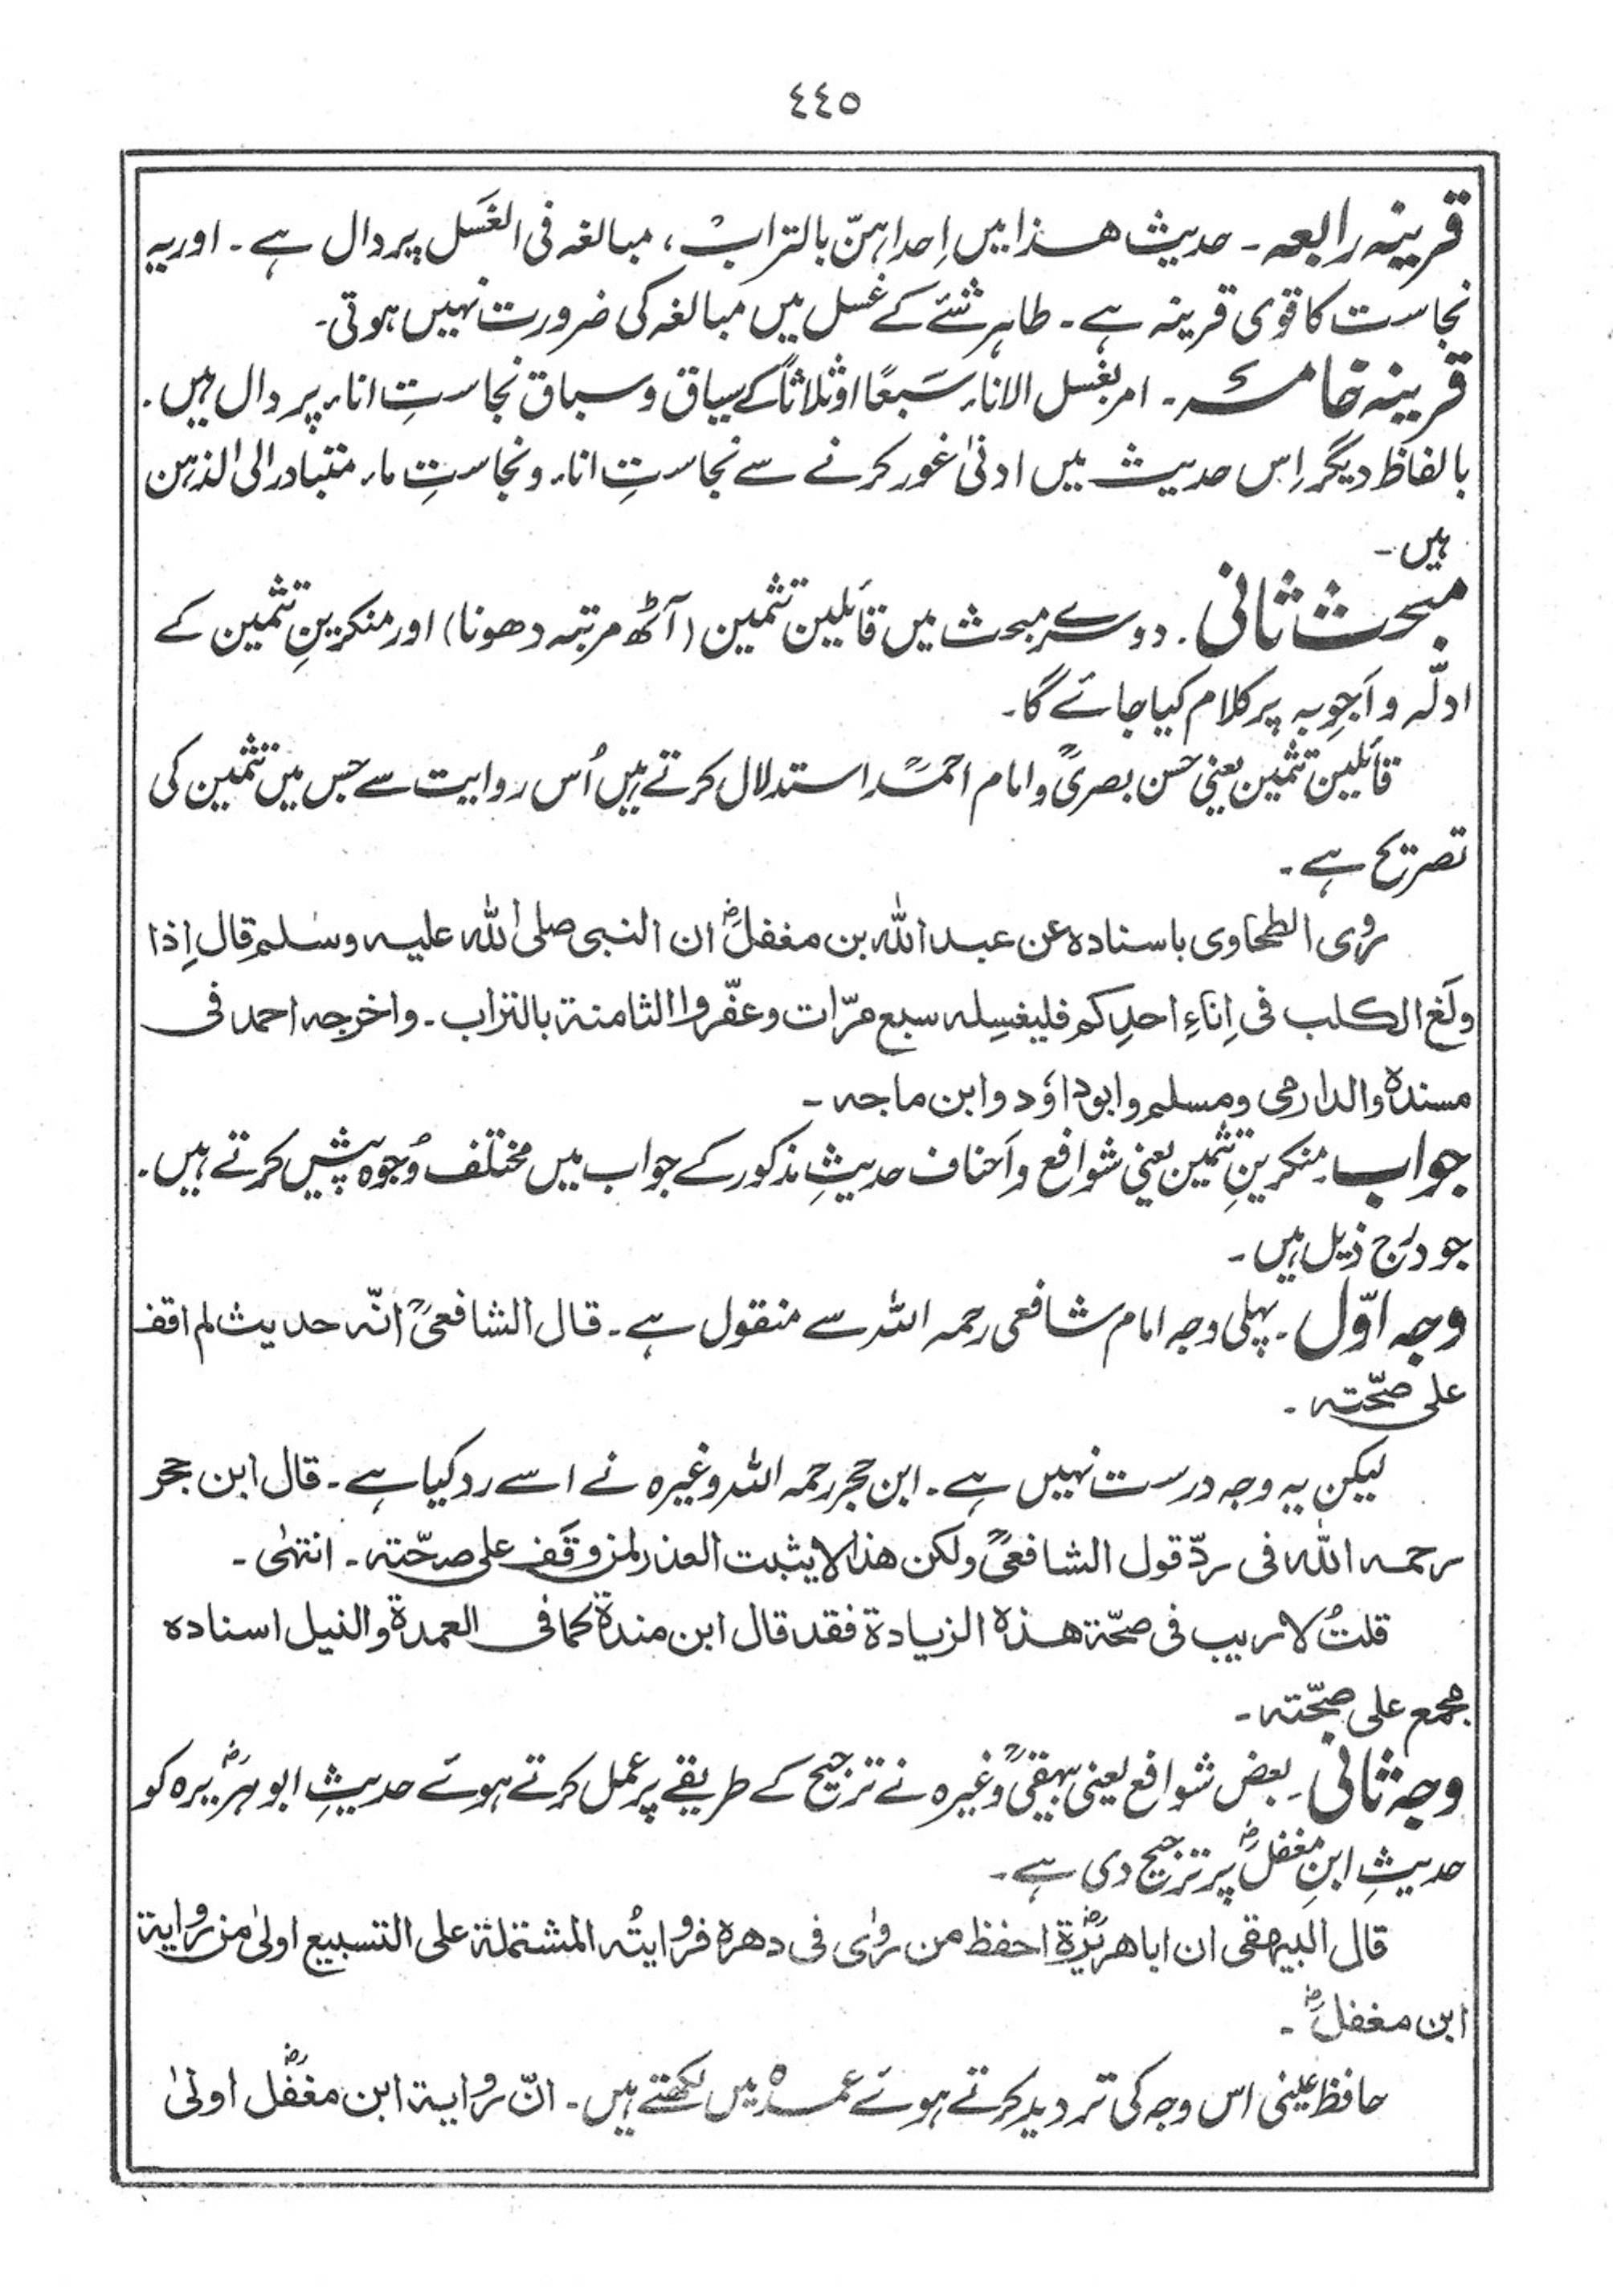 ٤٤٥
قرینہ رابعہ ۔ حدیث ھذا میں اِحداہنّ بالتراب، مبالغہ فی الغَسل پر دال ہے ۔ اور یہ
نجاست کا قوی قرینہ ہے ۔ طاہر شئے کے غسل میں مبالغہ کی ضرورت نہیں ہوتی۔
قرینہ خامسہ ۔ امر بغسل الاناء سَبعًا او ثلاثاً کے سیاق و سباق نجاستِ اناء پر دال ہیں ۔
بالفاظ دیگر اِس حدیث میں ادنیٰ غور کرنے سے نجاستِ اناء و نجاستِ ماء متبادر الی الذہن
ہیں ۔
مبحث ثانی ۔ دوسرے مبحث میں قائلین تثمین (آٹھ مرتبہ دھونا) اور منکرینِ تثمین کے
ادلّہ و اَجوِبہ پر کلام کیا جائے گا ۔
قائلین تثمین یعنی حسن بصریؒ و امام احمدؒ استدلال کرتے ہیں اُس روایت سے جس میں تثمین کی
تصریح ہے ۔
روٰی الطحاوی باسنادہ عن عبد اللہ بن مغفلؓ ان النبی صلی اللہ علیہ وسلم قال اِذا
ولَغ الکلب فی اِنَاءِ احدِکم فلیغسِلہ سبع مرّات وعفّروا الثامنۃ بالتراب ۔ واخرجہ احمد فی
مسندہٖ والدارمی ومسلم وابوداوٗد وابن ماجہ ۔
جواب ۔ منکرینِ تثمین یعنی شوافع و اَحناف حدیثِ مذکور کے جواب میں مختلف وُجوہ پیش کرتے ہیں ۔
جو درج ذیل ہیں ۔
وجہ اوّل ۔ پہلی وجہ امام شافعی رحمہ اللہ سے منقول ہے ۔ قال الشافعیؒ انّہ حدیث لم اقف
علی صحّتہ ۔
لیکن یہ وجہ درست نہیں ہے ۔ ابن حجر رحمہ اللہ وغیرہ نے اسے رد کیا ہے ۔ قال ابن حجر
رحمہ اللہ فی ردّ قول الشافعیؒ ولکن ھذا لا یثبت العذر لمن وقَف علی صحّتہ ۔ انتہٰی ۔
قلتُ لا ریب فی صحّۃ ھذہ الزیادۃ فقد قال ابن مندۃ کما فی العمدۃ والنیل اسنادہ
مجمع علی صحّتہ ۔
وجہ ثانی ۔ بعض شوافع یعنی بیہقیؒ وغیرہ نے ترجیح کے طریقے پر عمل کرتے ہوئے حدیثِ ابو ہریرہؓ کو
حدیثِ ابنِ مغفلؓ پر ترجیح دی ہے ۔
قال البیہقی ان اباھریرۃؓ احفظ من روٰی فی دھرہ فروایتُہ المشتملۃ علی التسبیع اولیٰ من روایۃ
ابن مغفلؓ ۔
حافظ عینی اس وجہ کی تردید کرتے ہوئے عمدہ میں لکھتے ہیں ۔ انّ روایۃ ابن مغفَّلؓ اولیٰ